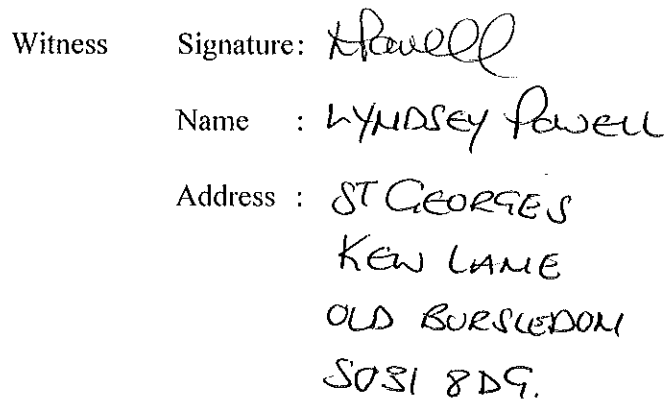 Witness Signature: LPowell
Name : LYNDSEY Powell
Address : ST GEORGES
KEW LANE
OLD BURSLEDON
SO31 8DG.